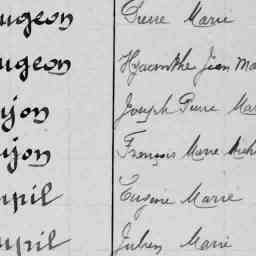 ugeon Pierre Marie
ugeon Hyacinthe Jean Ma
ujon Joseph Pierre Mar
ujon François Marie Mich
upil Eugène Marie
upil Julien Marie